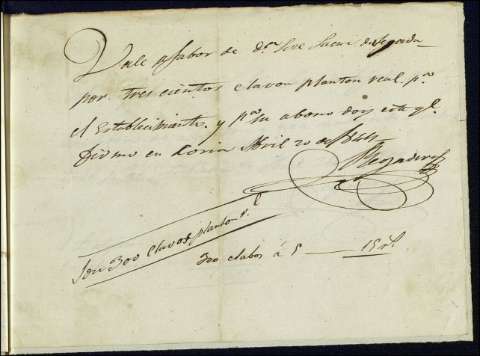 Vale a favor de Dn. Jose
por tres cientos clavos planton real. pa.
el Establecimiento. y pa. su abono doy este ql.
firmo en Loria Abril 20 de 1844
Son 300 clavos planton rl.
300 clabos á 5 — 15 rl.